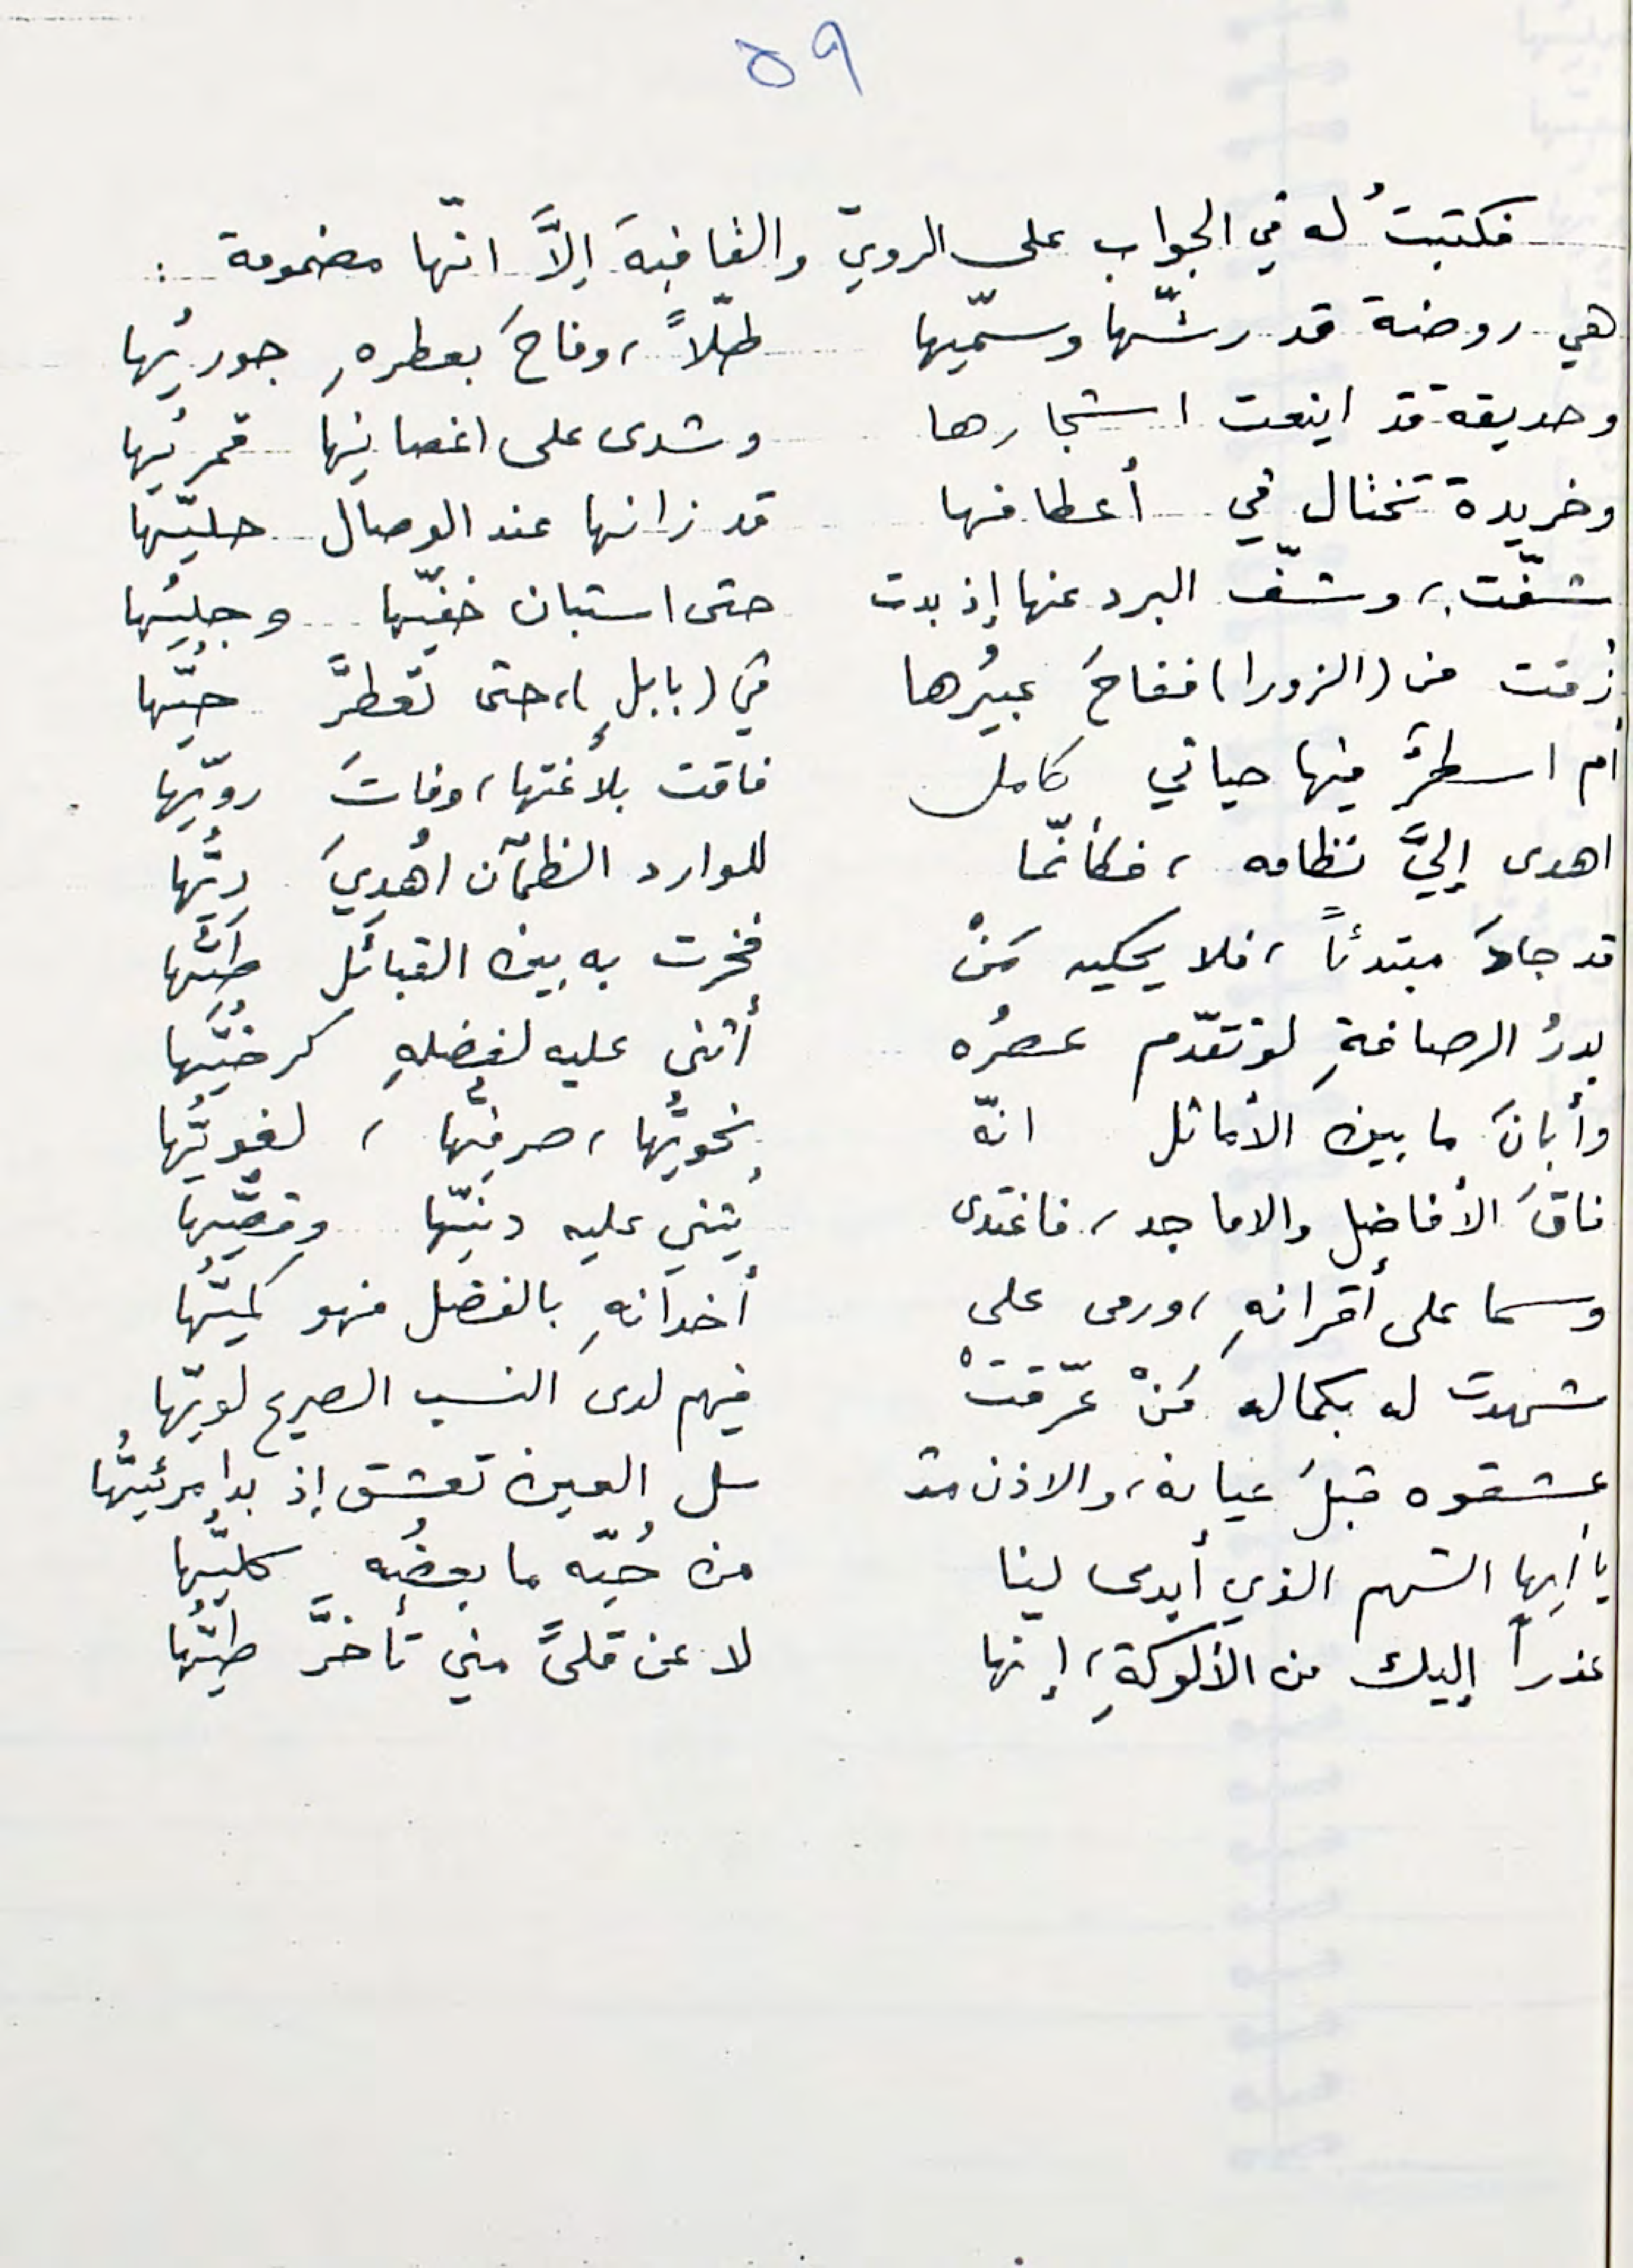 ٥٩
فكتبتُ له في الجواب على الرويّ والقافيةَ إلاَّ انّها مضمومة :
هي روضة قد رشّها وسمّيها طلّاً، وفاحَ بعطرهِ جوريُها
وحديقة قد اينعت اشجارها وشدى على اغصانِها قمريُها
وخريدة تختال في أعطافها قد زانها عند الوصال حليّها
شفّت، وشفّ البرد عنها إذ بدت حتى استبان خفيّها وجليُها
زُفت من (الزورا) ففاحَ عبيُرها في (بابلٍ)، حتى تعطرَّ حيّها
أم اسطرٌ فيها حياتي كامل فاقت بلاغتها، وفاتَ رويّها
اهدى إليَّ نظامه، فكأنّما للوارد الظمآن اُهدِيَ ريُّها
قد جاءَ مبتدئاً، فلا يحكيه مَنْ فخرت به بين القبائل طيُّها
بدرُ الرصافةِ لو تقدّم عصرُه أثنى عليه لفضلهِ كرخيُّها
وأبانَ ما بين الأماثل انّه نحويُّها، صرفيُّها، لغويُّها
فاقَ الأفاضل والاماجد، فاغتدى يُثني عليه دنيّها وقصيُّها
وسما على أقرانهِ، ورمى على أخدانهِ بالفضل فهو كميُّها
شهدت له بكماله مَنْ عرّقتْ فيهم لدى النسب الصريح لويّها
عشقوه قبلَ عيانه، والاذن قد سل العين تعشق إذ بدا مرئيُّها
يا أيها الشهم الذي أبدى لينا من حُبّه ما بعضُه كليُّها
عذراً إليك من الألوكةِ، إنها لا عن قلىً مني تأخرَّ طيُّها